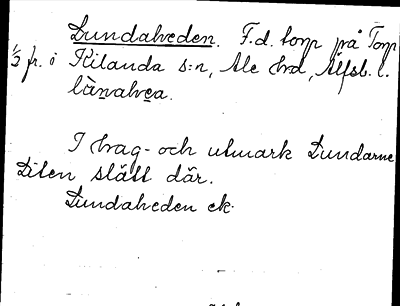 Lundaheden. F.d. torp på Torp
1/2 fr. i Kilanda s:n, Ale hrd, Älfsb. l.
I hag- och utmark Lundarne
Liten slätt där.
Lundaheden ek.